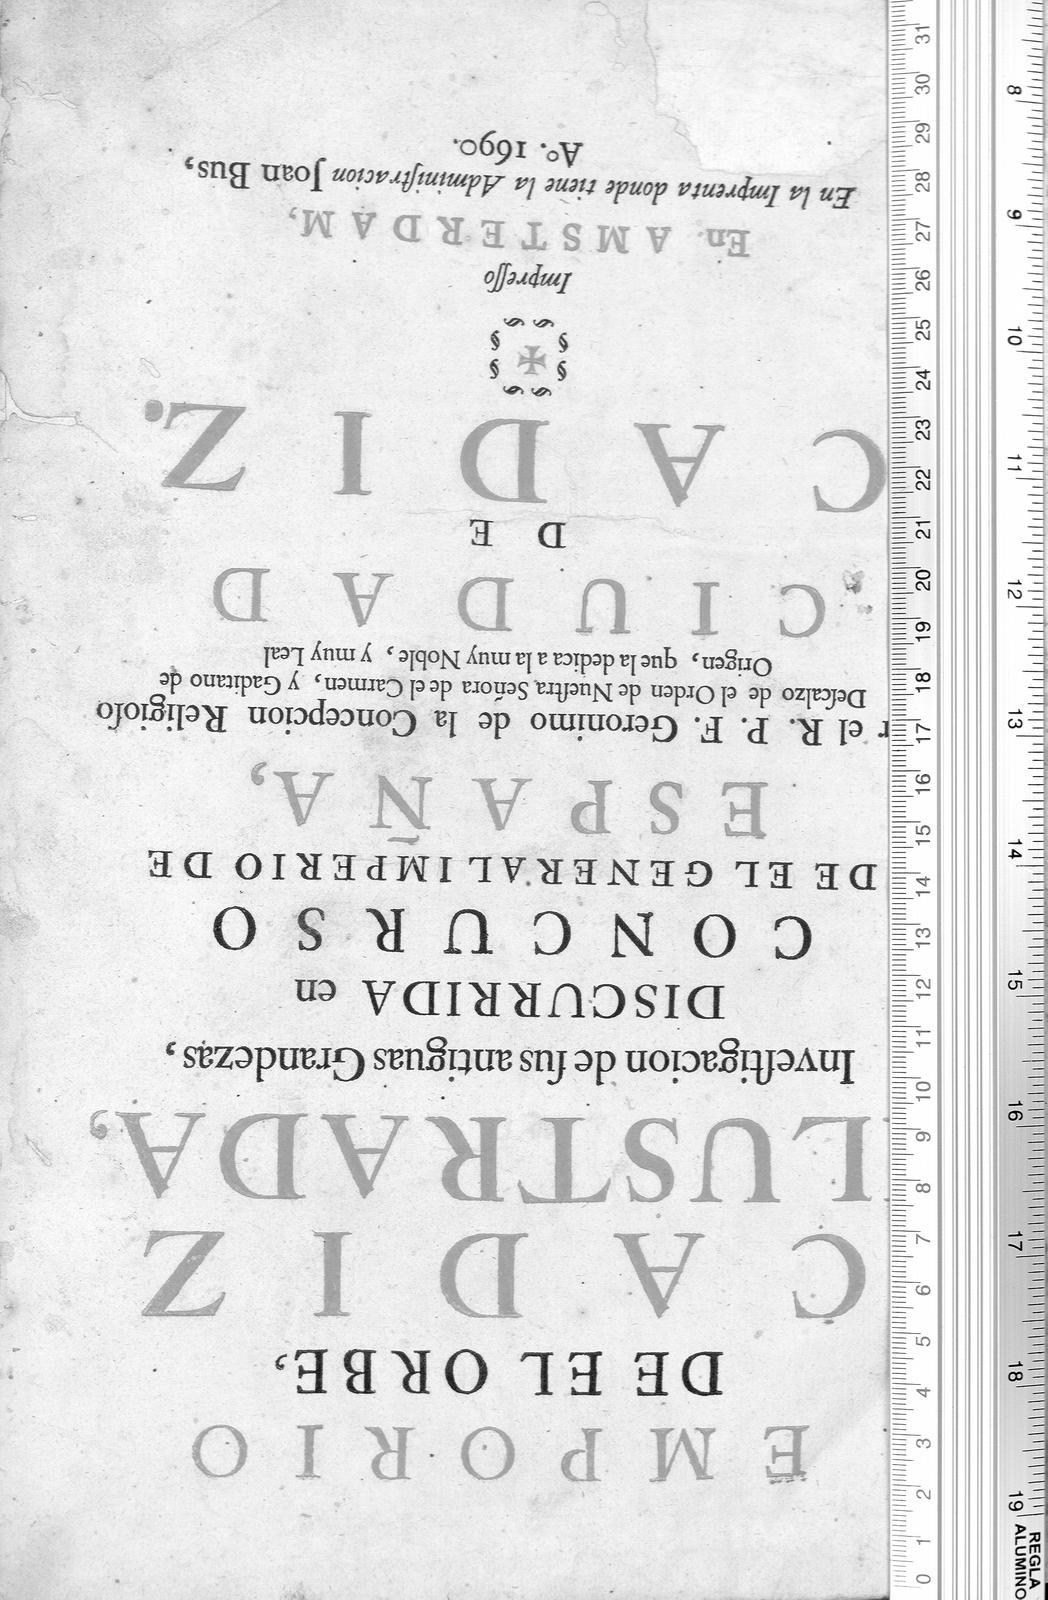 EMPORIO
DE EL ORBE,
CADIZ
LUSTRADA,
Inveſtigacion de ſus antiguas Grandezas,
DISCURRIDA en
CONCURSO
DE EL GENERAL IMPERIO DE
ESPAÑA,
r el R. P. F. Geronimo de la Concepcion Religioſo
Deſcalzo de el Orden de Nueſtra Señora de el Carmen, y Gaditano de
Origen, que la dedica a la muy Noble, y muy Leal
CIUDAD
DE
CADIZ.
Impreſſo
En AMSTERDAM,
En la Imprenta donde tiene la Adminiſtracion Joan Bus,
Aº. 1690.
0 1 2 3 4 5 6 7 8 9 10 11 12 13 14 15 16 17 18 19 20 21 22 23 24 25 26 27 28 29 30 31
8 9 10 11 12 13 14 15 16 17 18 19
REGLA
ALUMINO